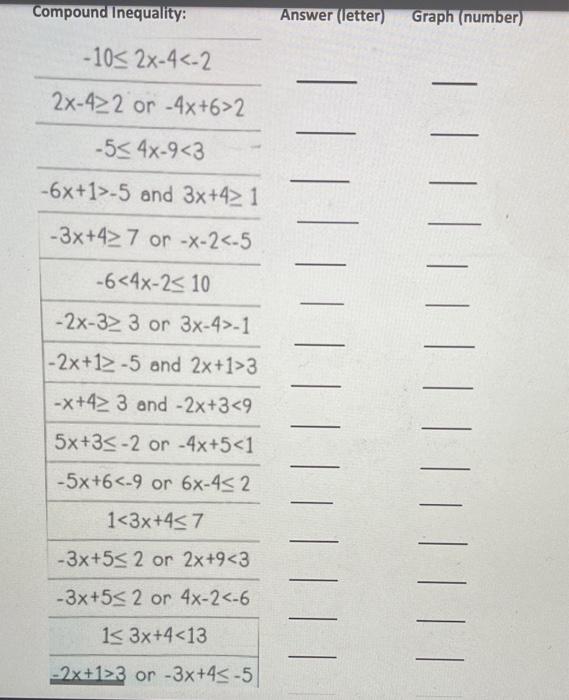 Compound Inequality: Answer (letter) Graph (number)
-10≤ 2x-4<-2
2x-4≥2 or -4x+6>2
-5≤ 4x-9<3
-6x+1>-5 and 3x+4≥ 1
-3x+4≥ 7 or -x-2<-5
-6<4x-2≤ 10
-2x-3≥ 3 or 3x-4>-1
-2x+1≥ -5 and 2x+1>3
-x+4≥ 3 and -2x+3<9
5x+3≤ -2 or -4x+5<1
-5x+6<-9 or 6x-4≤ 2
1<3x+4≤ 7
-3x+5≤ 2 or 2x+9<3
-3x+5≤ 2 or 4x-2<-6
1≤ 3x+4<13
-2x+1>3 or -3x+4≤ -5